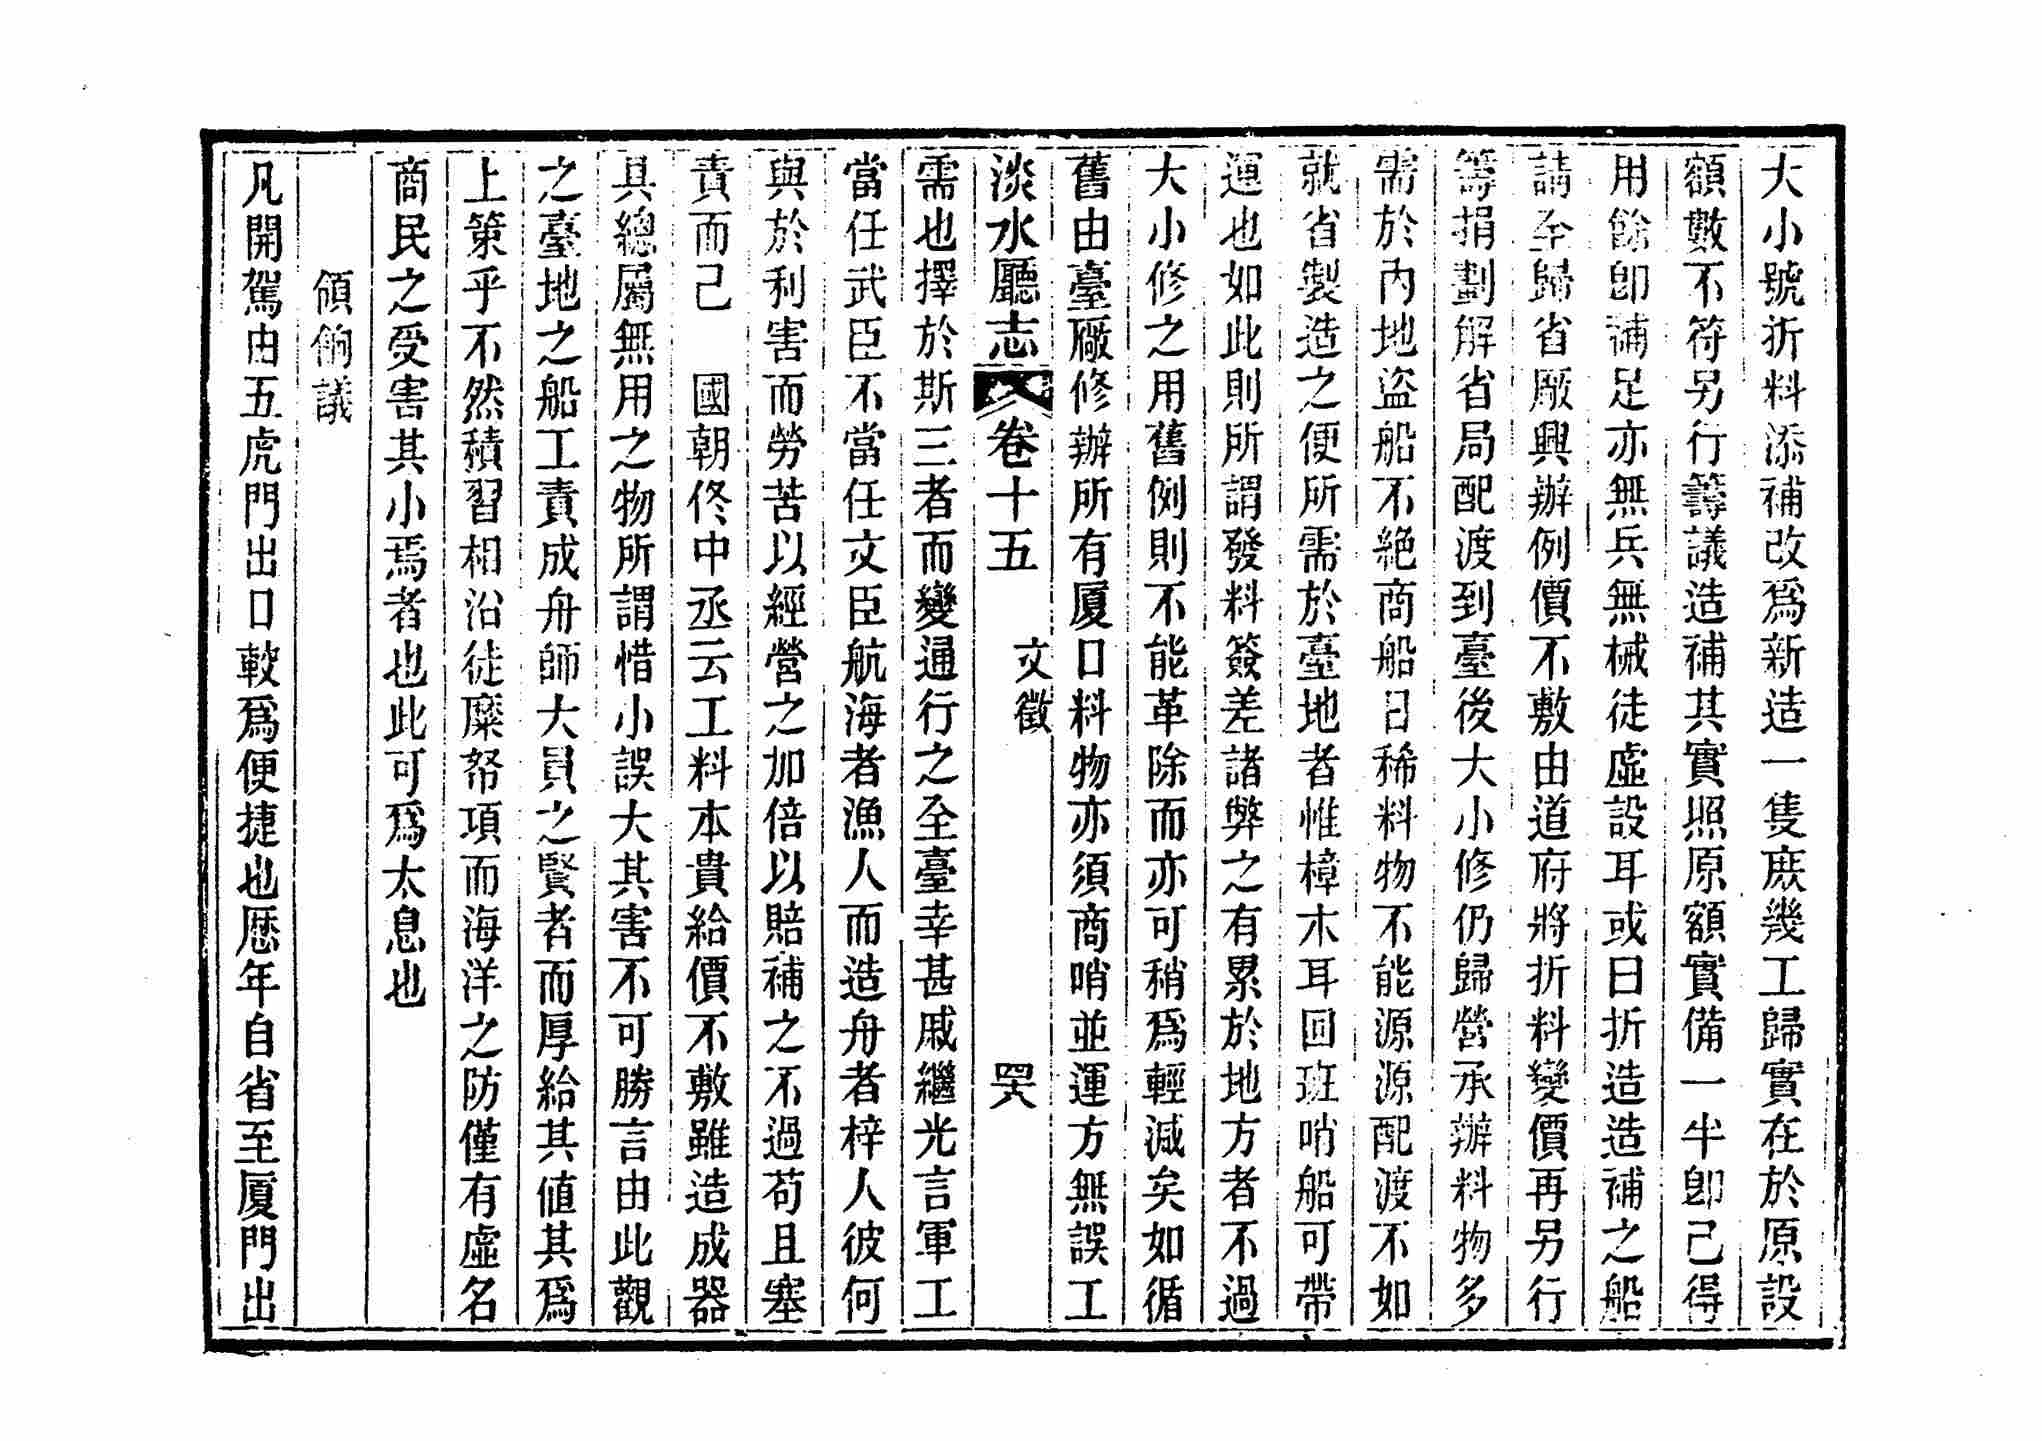 大小號折料添補改爲新造一隻庶幾工歸實在於原設
額數不符另行籌議造補其實照原額實備一半卽己得
用餘卽補足亦無兵無械徒虛設耳或曰折造造補之船
請至歸省厰興辦例價不敷由道府將折料變價再另行
籌捐劃解省局配渡到臺後大小修仍歸營承辦料物多
需於內地盜船不絕商船日稀料物不能源源配渡不如
就省製造之便所需於臺地者惟樟木耳回班哨船可帶
運也如此則所謂發料簽差諸弊之有累於地方者不過
大小修之用舊例則不能革除而亦可稍爲輕減矣如循
舊由臺廠修辦所有厦口料物亦須商哨並運方無誤工
淡水廳志 卷十五 文徵 四六
需也擇於斯三者而變通行之至臺幸甚戚繼光言軍工
當任武臣不當任文臣航海者漁人而造舟者梓人彼何
與於利害而勞苦以經營之加倍以賠補之不過苟且塞
責而己 國朝佟中丞云工料本貴給價不敷雖造成器
具總屬無用之物所謂惜小誤大其害不可勝言由此觀
之臺地之船工責成舟師大員之賢者而厚給其値其爲
上策乎不然積習相沿徒糜帑項而海洋之防僅有虛名
商民之受害其小焉者也此可爲太息也
領餉議
凡開駕由五虎門出口較爲便捷也歷年自省至厦門出